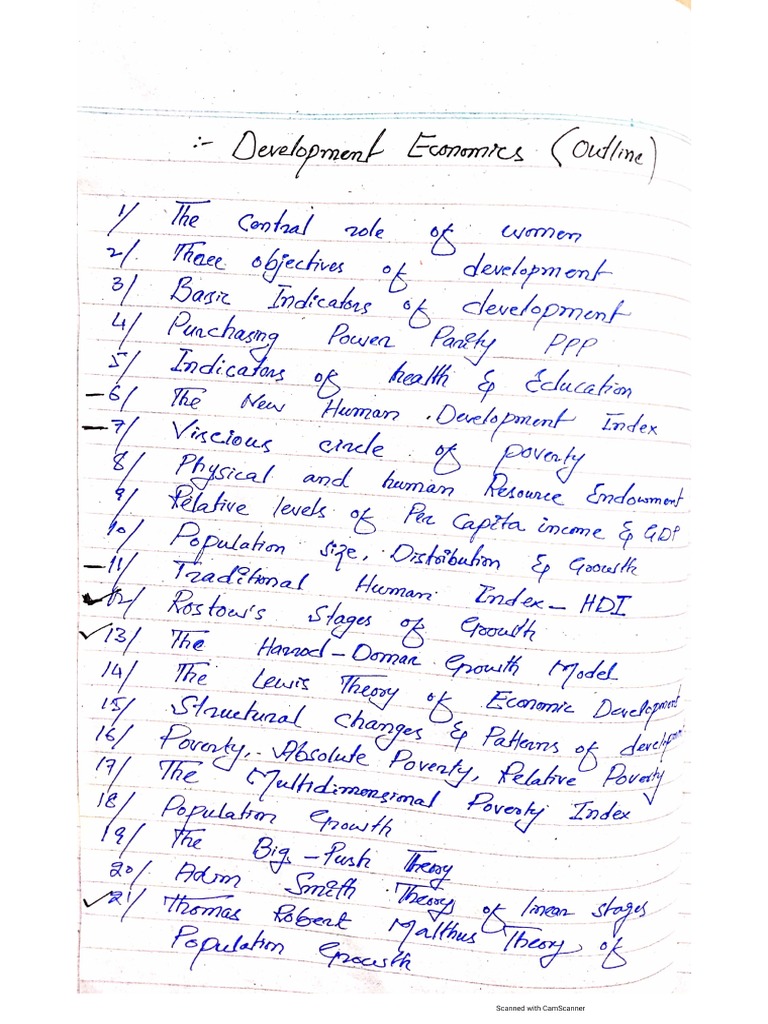 :- Development Economics (Outline)
1/ The Central role of women
2/ Three objectives of development
3/ Basic Indicators of development
4/ Purchasing Power Parity PPP
5/ Indicators of health & Education
-6/ The New Human Development Index
-7/ Viscious circle of poverty
8/ Physical and human Resource Endowment
9/ Relative levels of Per Capita income & GDP
10/ Population size, Distribution & Growth
-11/ Traditional Human Index - HDI
✓12/ Rostow's Stages of Growth
✓13/ The Harrod-Domar Growth Model
14/ The Lewis Theory of Economic Development
15/ Structural changes & Patterns of development
16/ Poverty, Absolute Poverty, Relative Poverty
17/ The Multidimensional Poverty Index
18/ Population Growth
19/ The Big-Push Theory
20/ Adm Smith Theory of linear stages
✓21/ Thomas Robert Malthus Theory of
Population Growth
Scanned with CamScanner